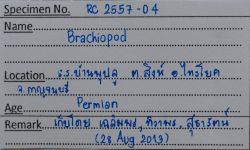 Specimen No. RC 2557-04
Name
Brachiopod
Location ร.ร.บ้านพุปลู ต.สิงห์ อ.ไทรโยค
จ.กาญจนบุรี
Age Permian
Remark เก็บโดย เฉลิมพร, ทิวาพร, สุธารัตน์
(28 Aug 2019)